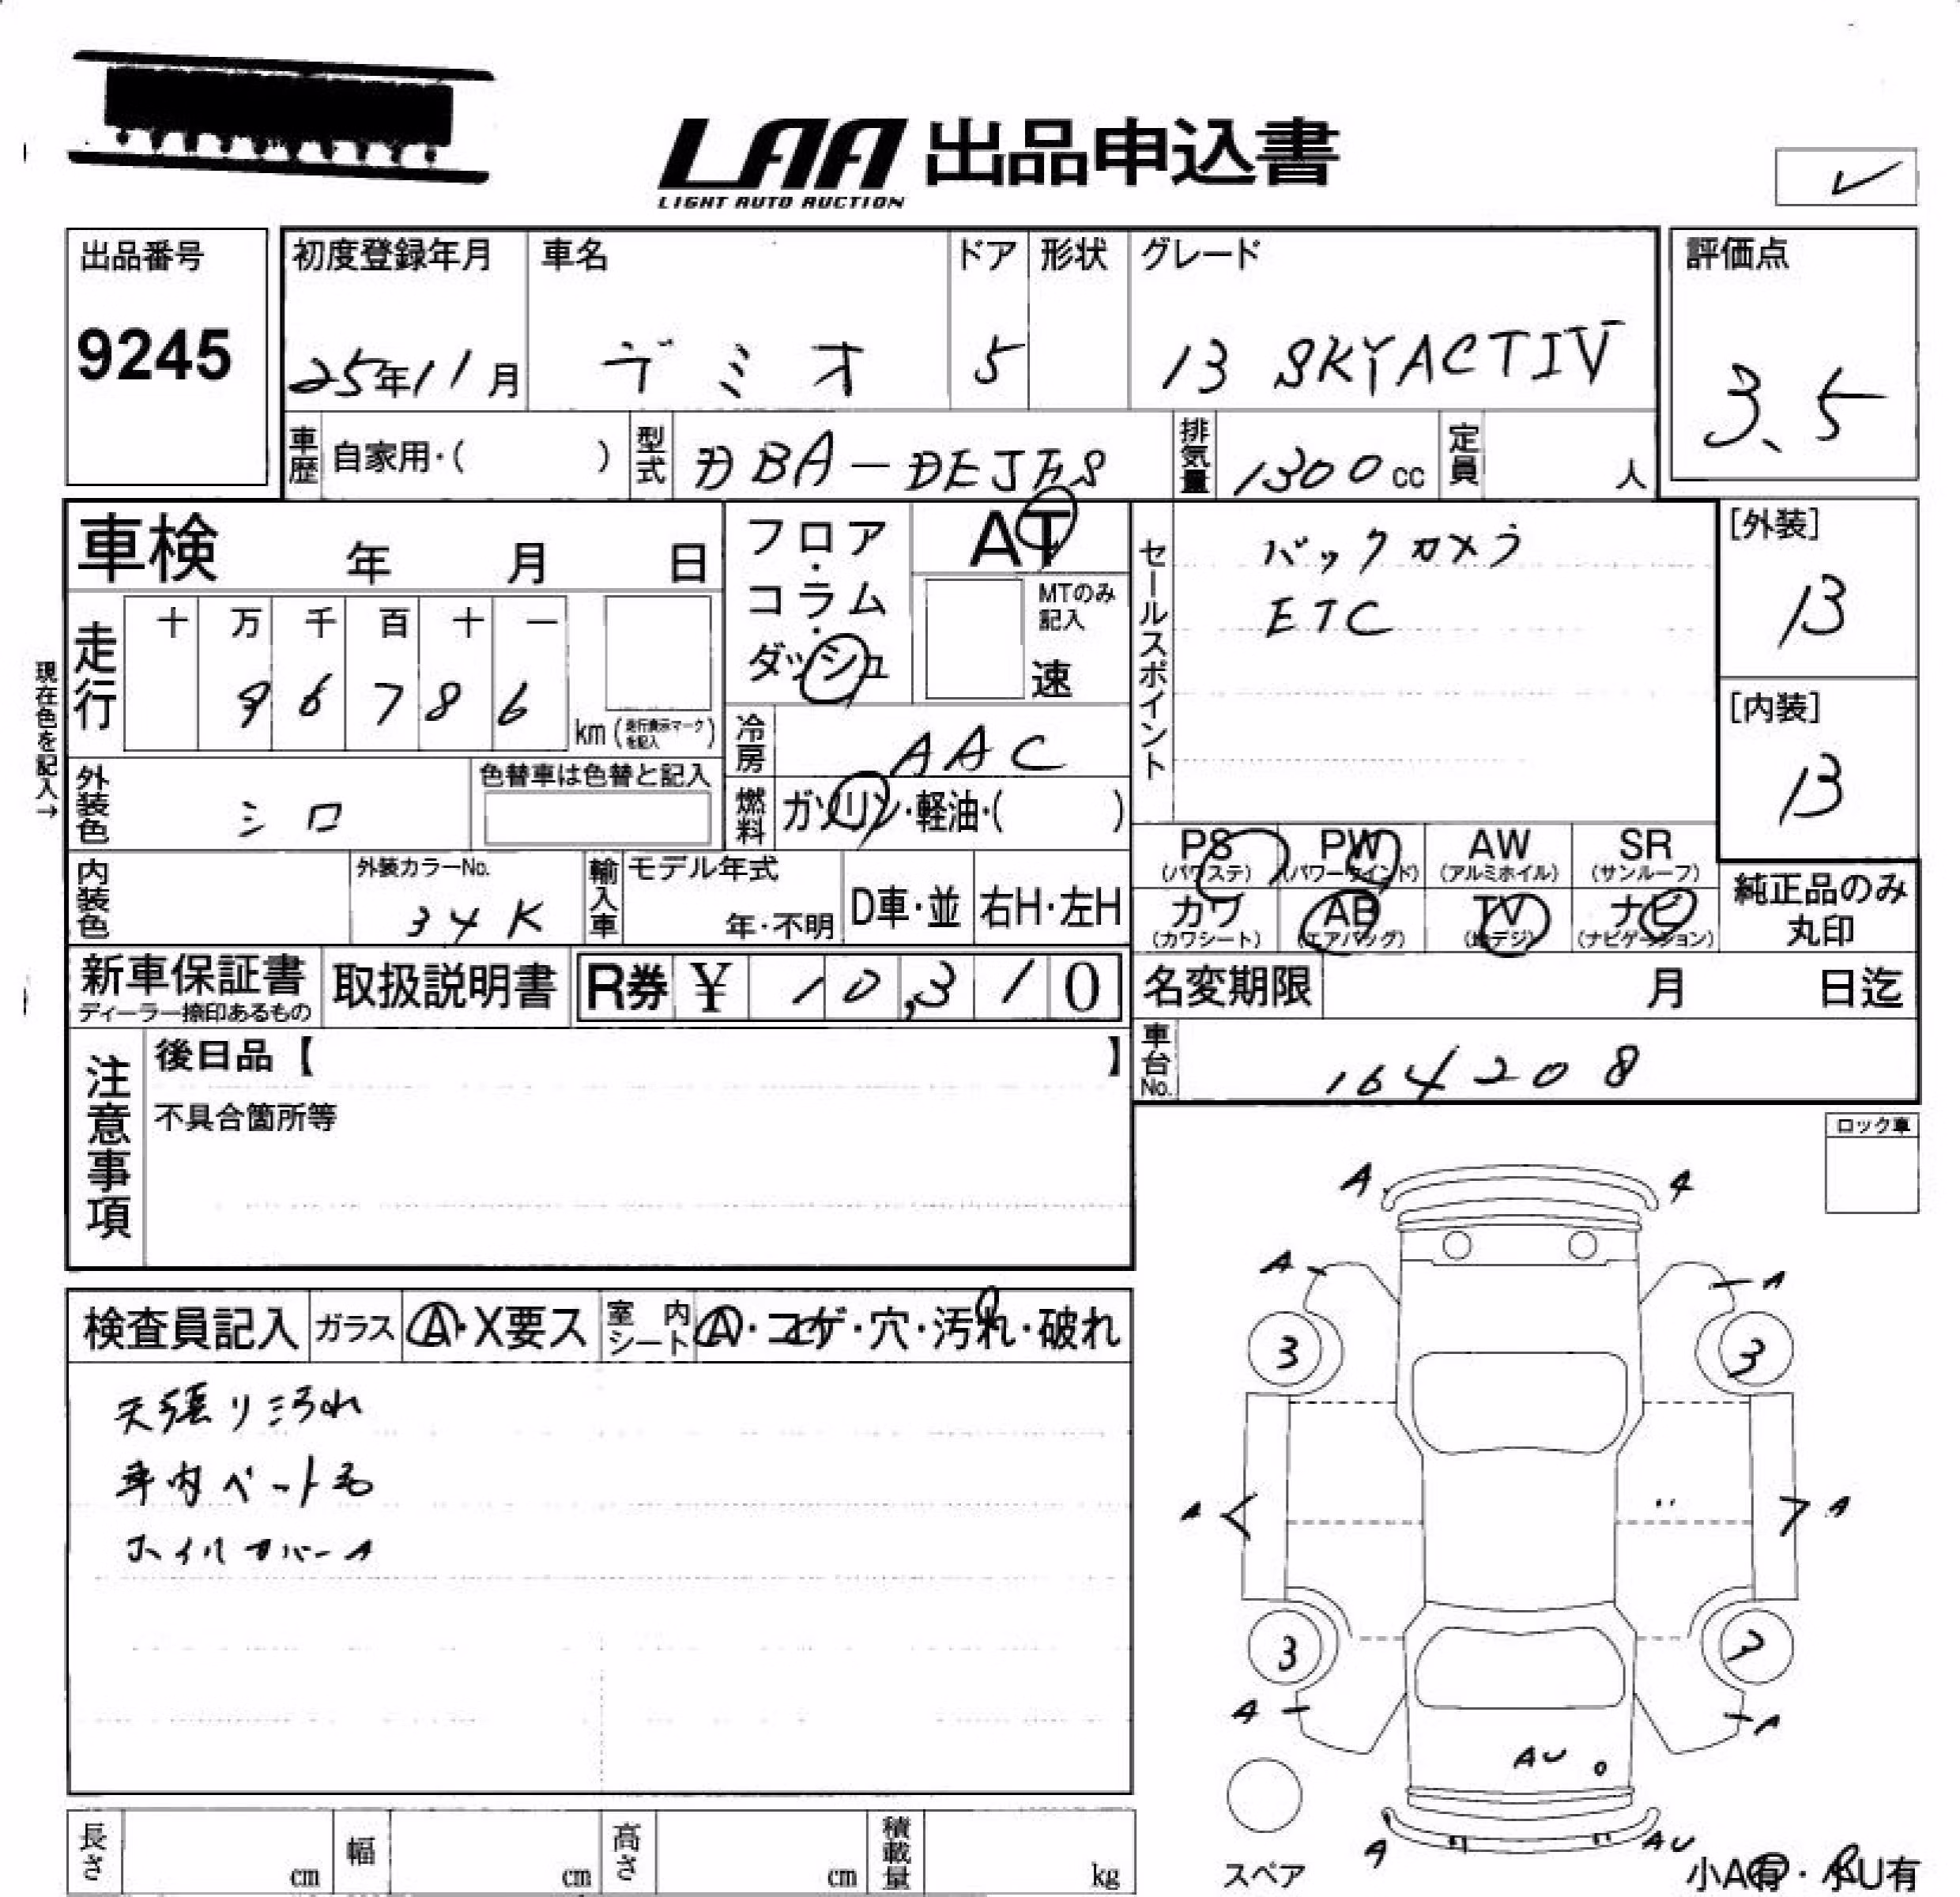 LAA 出品申込書
LIGHT AUTO AUCTION
✓
出品番号
9245
初度登録年月
25年11月
車名
デミオ
ドア
5
形状
グレード
13 SKYACTIV
評価点
3.5
車歴
自家用・( )
型式
DBA-DEJFS
排気量
1300cc
定員
人
車検 年 月 日
フロア・コラム・ダッシュ
AT
MTのみ記入
速
セールスポイント
バックカメラ
ETC
[外装]
B
[内装]
B
現在色を記入→
走行
十 万 千 百 十 一
9 6 7 8 6
km (走行表示マークを記入)
冷房
AAC
外装色
シロ
色替車は色替と記入
燃料
ガソリン・軽油・( )
PS
(パワステ)
PW
(パワーウインド)
AW
(アルミホイル)
SR
(サンルーフ)
内装色
外装カラーNo.
34K
輸入車
モデル年式
年・不明
D車・並
右H・左H
カワ
(カワシート)
AB
(エアバッグ)
TV
(地デジ)
ナビ
(ナビゲーション)
純正品のみ
丸印
新車保証書
ディーラー捺印あるもの
取扱説明書
R券 ¥ 10,310
名変期限 月 日迄
注意事項
後日品【 】
不具合箇所等
車台No.
164208
ロック車
検査員記入
ガラス
A・X要ス
室内シート
A・コゲ・穴・汚れ・破れ
天張り汚れ
車内ペット毛
ホイルカバーA
A A
A A
3 3
A A
3 3
A A
AU
A AU
スペア
小A有・小U有
長さ cm
幅 cm
高さ cm
積載量 kg